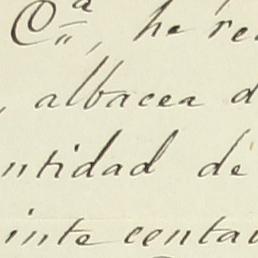 Cª, he re
, albacea d
ntidad de
inte centa